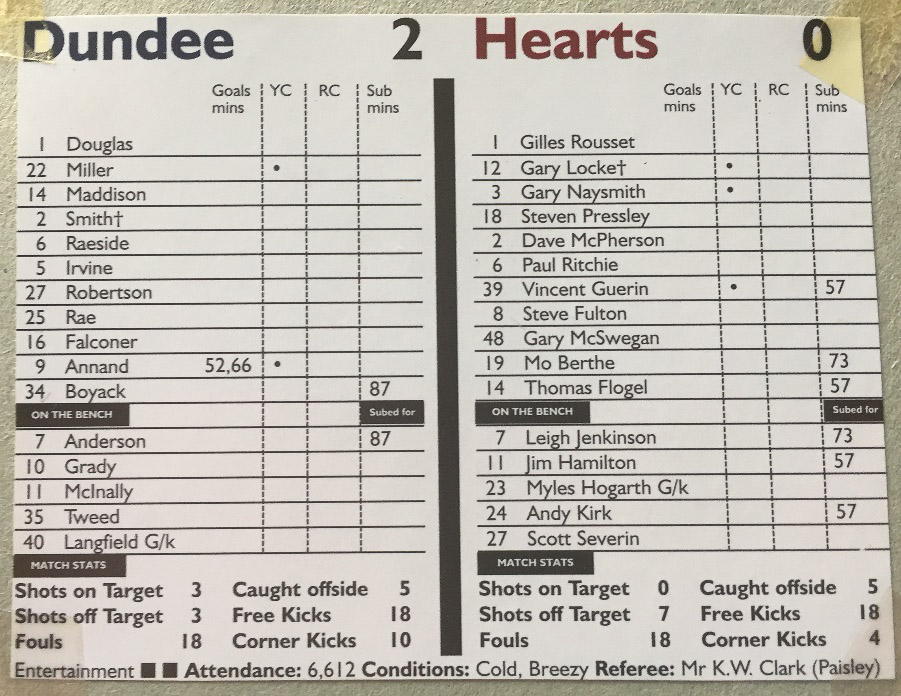 Dundee 2
Goals mins YC RC Sub mins
1 Douglas
22 Miller •
14 Maddison
2 Smith†
6 Raeside
5 Irvine
27 Robertson
25 Rae
16 Falconer
9 Annand 52,66 •
34 Boyack 87
ON THE BENCH Subed for
7 Anderson 87
10 Grady
11 McInally
35 Tweed
40 Langfield G/k
MATCH STATS
Shots on Target 3 Caught offside 5
Shots off Target 3 Free Kicks 18
Fouls 18 Corner Kicks 10
Hearts 0
Goals mins YC RC Sub mins
1 Gilles Rousset
12 Gary Locke† •
3 Gary Naysmith •
18 Steven Pressley
2 Dave McPherson
6 Paul Ritchie
39 Vincent Guerin • 57
8 Steve Fulton
48 Gary McSwegan
19 Mo Berthe 73
14 Thomas Flogel 57
ON THE BENCH Subed for
7 Leigh Jenkinson 73
11 Jim Hamilton 57
23 Myles Hogarth G/k
24 Andy Kirk 57
27 Scott Severin
MATCH STATS
Shots on Target 0 Caught offside 5
Shots off Target 7 Free Kicks 18
Fouls 18 Corner Kicks 4
Entertainment ■ ■ Attendance: 6,612 Conditions: Cold, Breezy Referee: Mr K.W. Clark (Paisley)